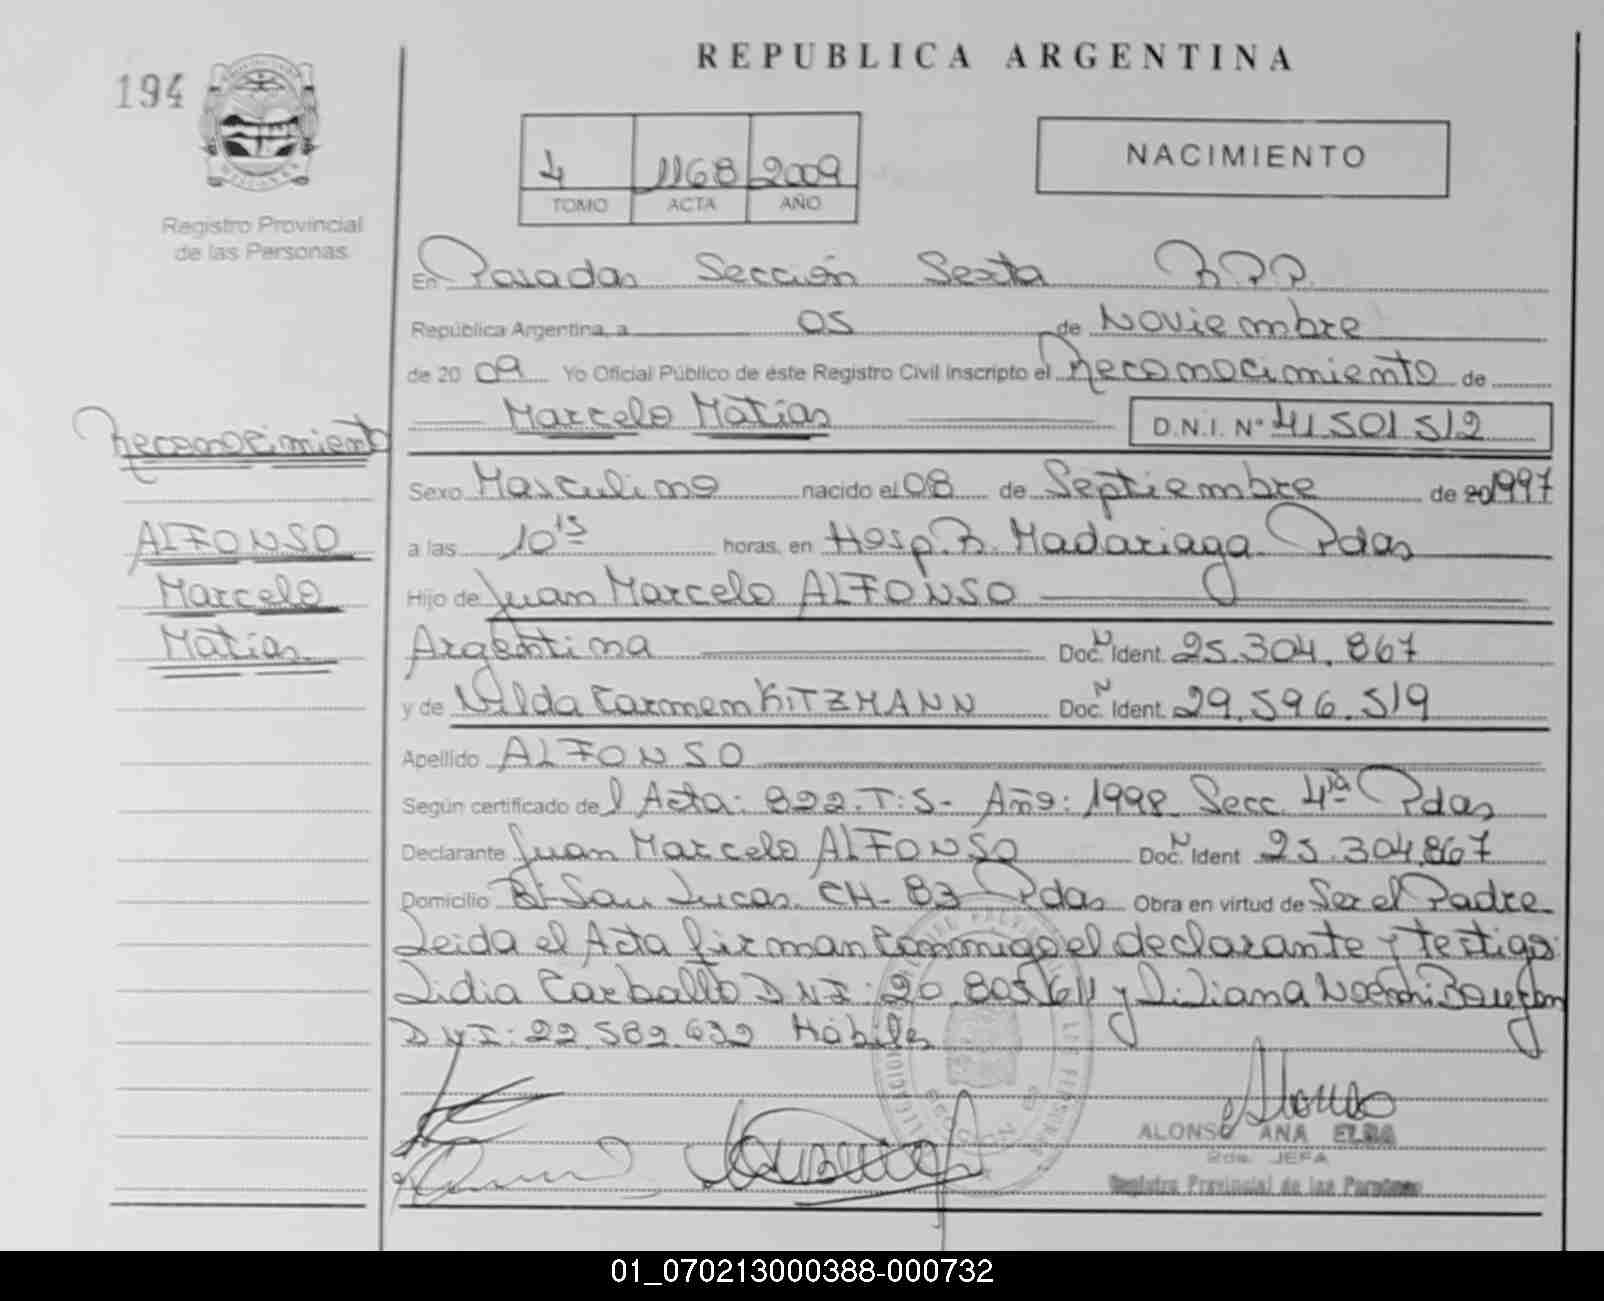 REPUBLICA ARGENTINA
194
4 1168 2009
TOMO ACTA AÑO
NACIMIENTO
Registro Provincial
de las Personas
En Posadas Sección Sexta R.P.P.
República Argentina, a 05 de Noviembre
de 20 09 Yo Oficial Público de éste Registro Civil Inscripto el Reconocimiento de
Marcelo Matías D.N.I. Nº 41.501.512
Reconocimiento
ALFONSO
Marcelo
Matías
Sexo Masculino nacido el 08 de Septiembre de 1997
a las 10 15 horas, en Hosp. R. Madariaga Pdas
Hijo de Juan Marcelo ALFONSO
Argentina Doc. N Ident. 25.304.867
y de Nilda Carmen KITZMANN Doc. N Ident. 29.596.519
Apellido ALFONSO
Según certificado del Acta: 822. T: 5- Año: 1998. Secc. 4ta Pdas
Declarante Juan Marcelo ALFONSO Doc. N Ident 25.304.867
Domicilio Bº San Lucas CH- 83 Pdas Obra en virtud de Ser el Padre
Leida el Acta firman conmigo el declarante y testigos
Lidia Carballo DNI: 20.805.611 y Liliana Noemi
DNI: 22.582.632 Hábiles
ALONSO ANA ELBA
2da. JEFA
Registro Provincial de las Personas
01_070213000388-000732